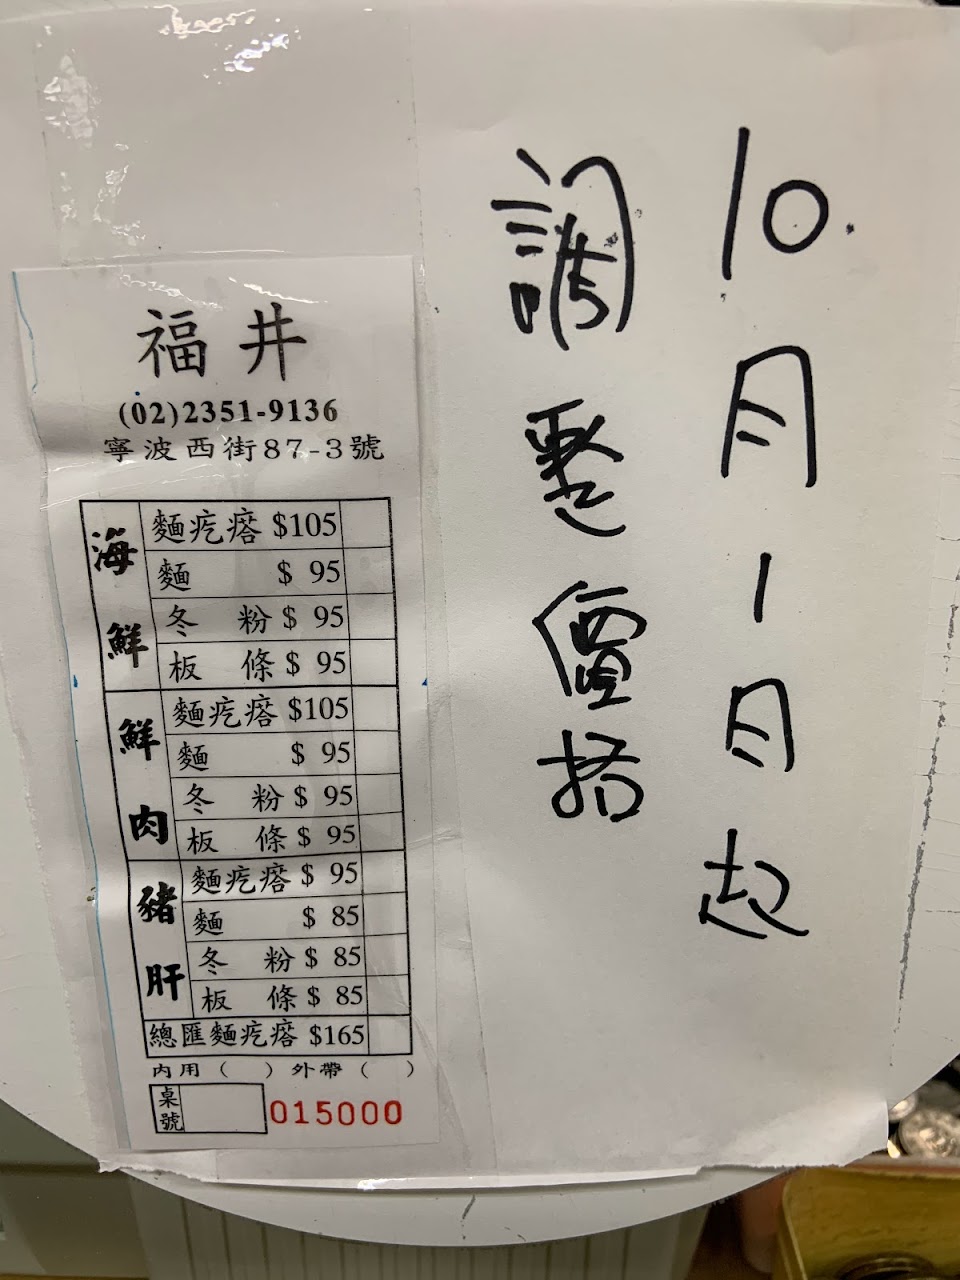 10月1日起
調整價格
福井
(02)2351-9136
寧波西街87-3號
海鮮
麵疙瘩 $105
麵 $ 95
冬粉 $ 95
板條 $ 95
鮮肉
麵疙瘩 $105
麵 $ 95
冬粉 $ 95
板條 $ 95
豬肝
麵疙瘩 $ 95
麵 $ 85
冬粉 $ 85
板條 $ 85
總匯麵疙瘩 $165
內用 ( ) 外帶 ( )
桌號
015000